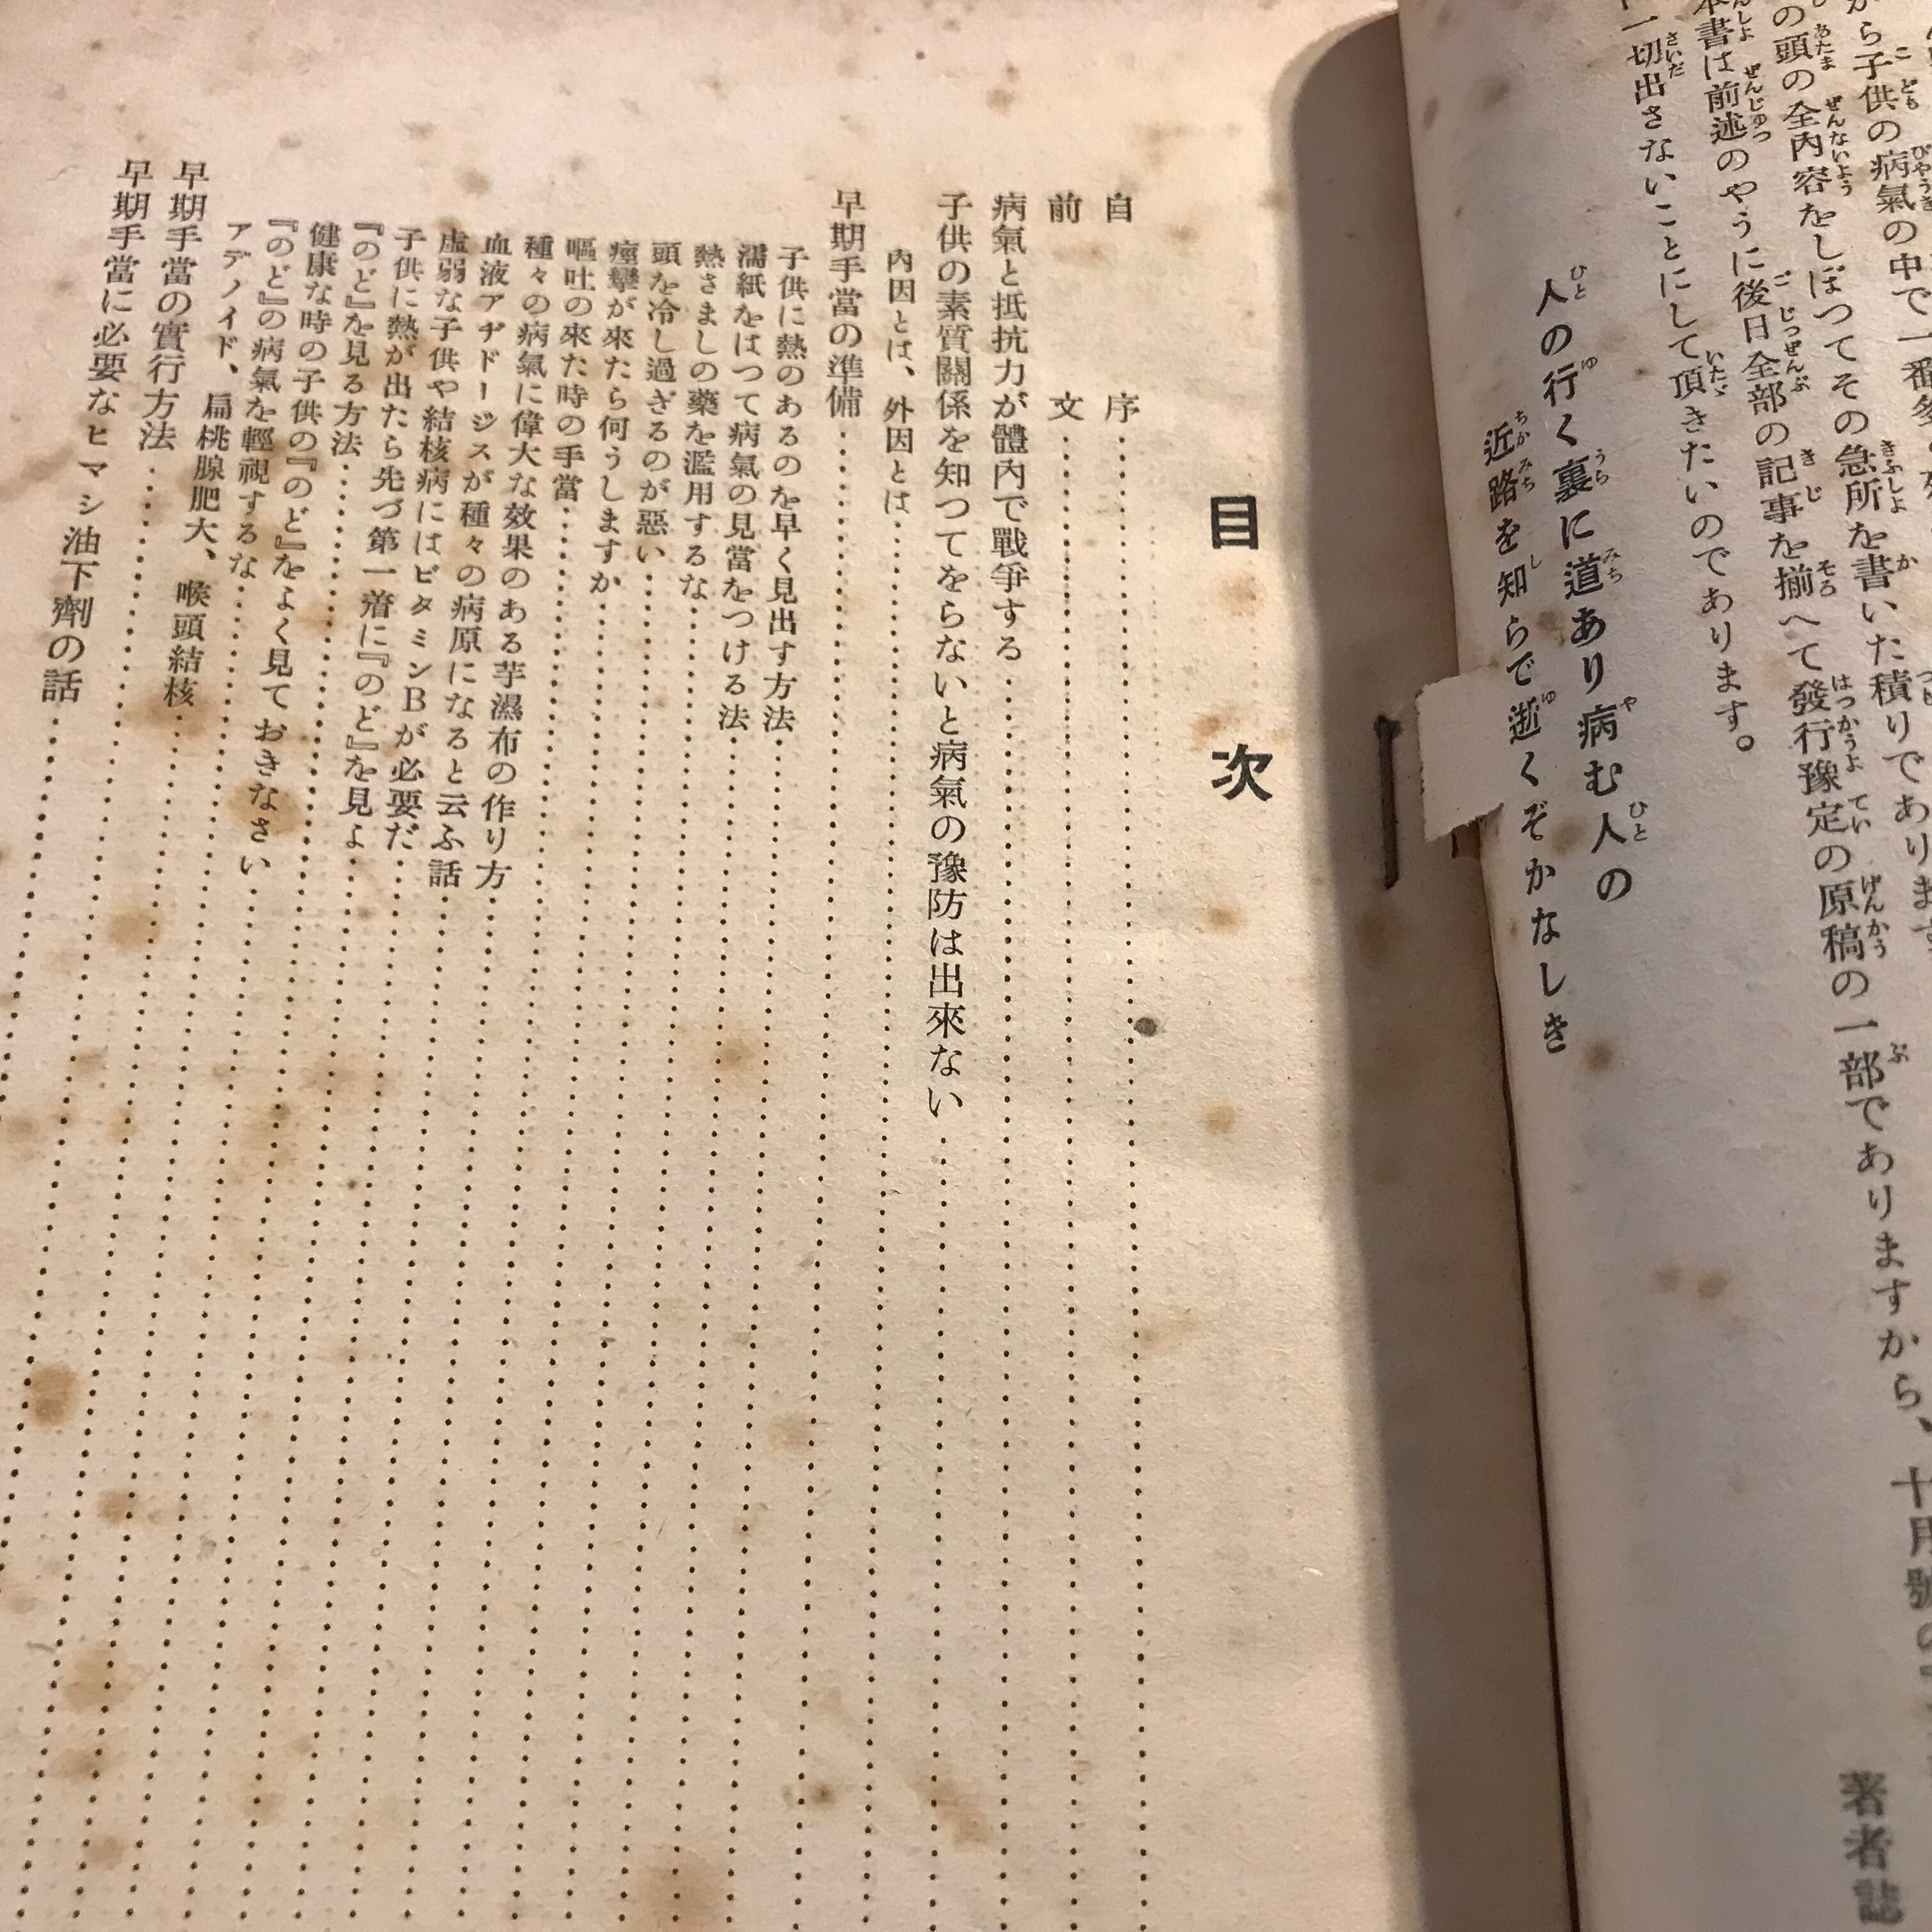 から子供の病氣の中で一番多
の頭の全內容をしぼつてその急所を書いた積りであります
本書は前述のやうに後日全部の記事を揃へて發行豫定の原稿の一部でありますから、十月號の
一切出さないことにして頂きたいのであります。
人の行く裏に道あり病む人の
近路を知らで逝くぞかなしき
著者誌
目次
自序
前文
病氣と抵抗力が體內で戰爭する
子供の素質關係を知つてをらないと病氣の豫防は出來ない
內因とは、外因とは
早期手當の準備
子供に熱のあるのを早く見出す方法
濡紙をはつて病氣の見當をつける法
熱さましの藥を濫用するな
頭を冷し過ぎるのが惡い
痙攣が來たら何うしますか
嘔吐の來た時の手當
種々の病氣に偉大な效果のある芋濕布の作り方
血液アチドージスが種々の病原になると云ふ話
虛弱な子供や結核病にはビタミンBが必要だ
子供に熱が出たら先づ第一着に『のど』を見よ
『のど』を見る方法
健康な時の子供の『のど』をよく見ておきなさい
『のど』の病氣を輕視するな
アデノイド、扁桃腺肥大、喉頭結核
早期手當の實行方法
早期手當に必要なヒマシ油下劑の話